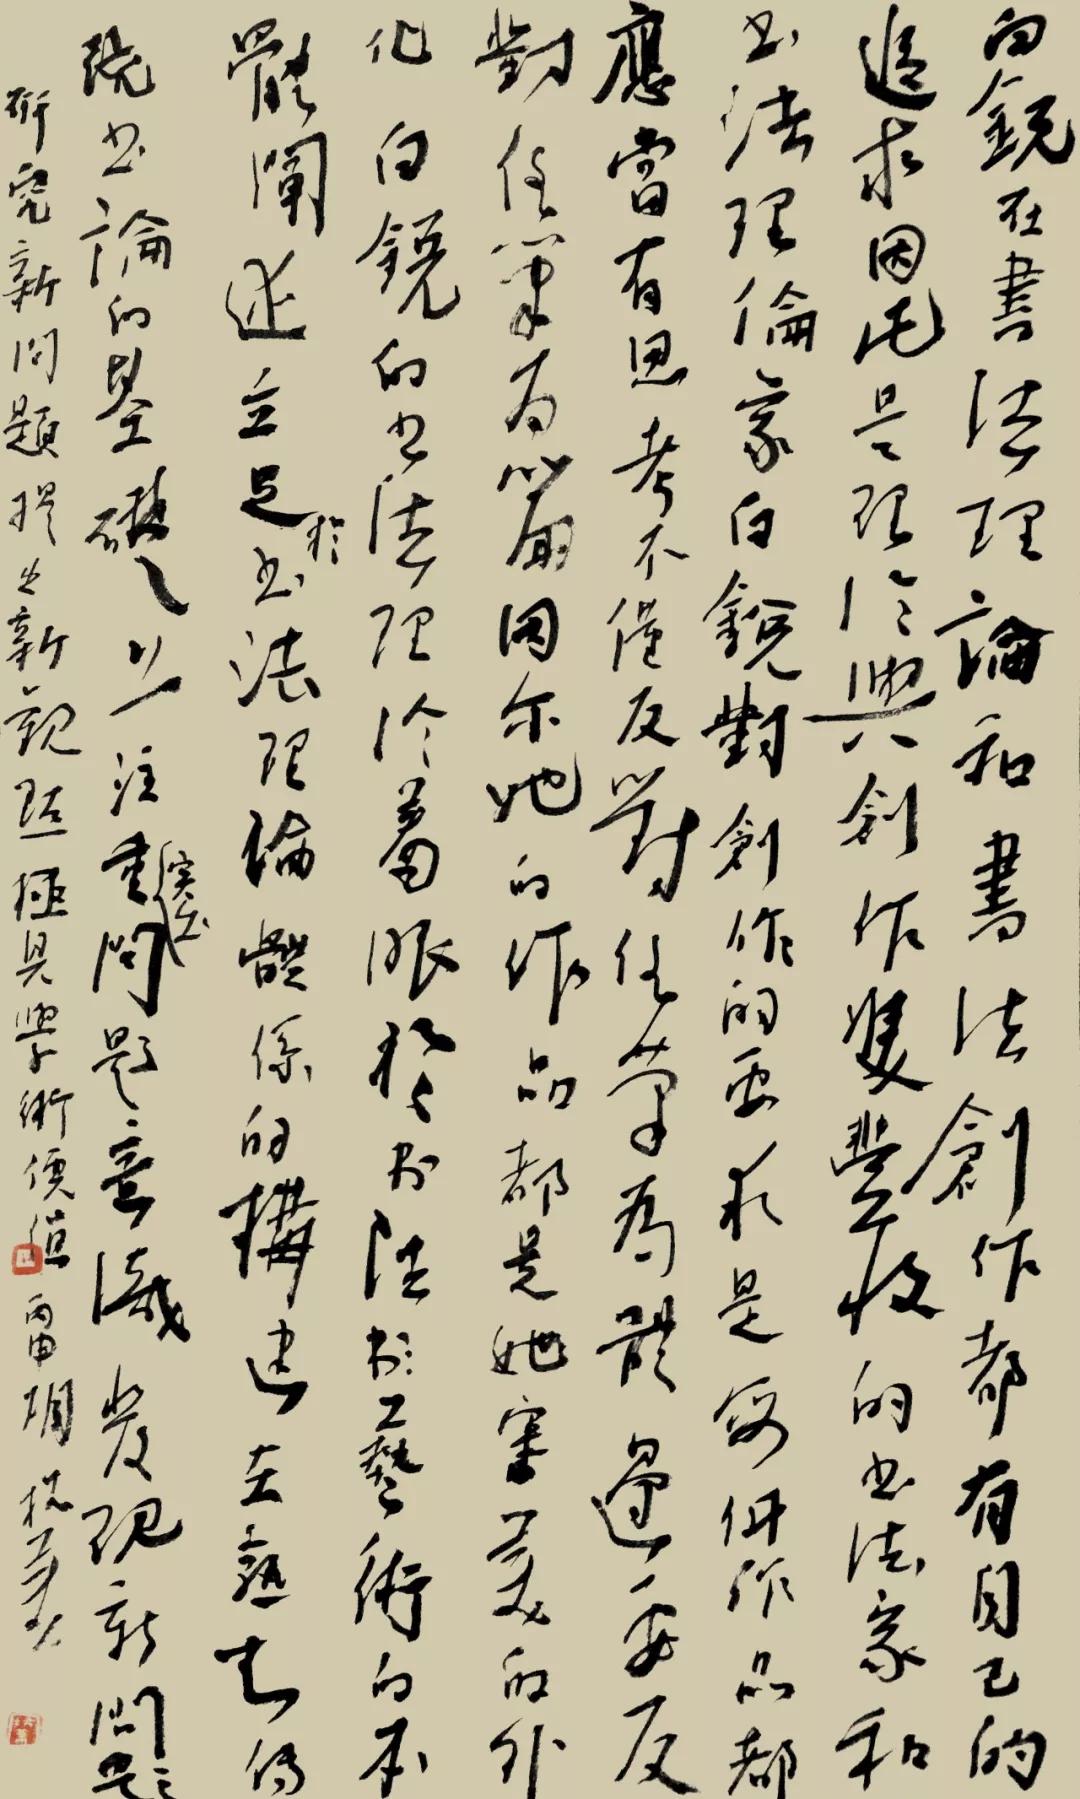 白銳在書法理論和書法創作都有自己的
追求因此是理論與創作雙豐收的书法家和
书法理倫家白銳對創作的要求是每件作品都
應當有思考不僅反對任筆為體還要反
對任筆为篇因尔她的作品都是她審美的外
化白銳的书法理论着眼於书法於藝術的本
體闡述立足於书法理論體係的構建在熟知传
统书論的基礎之上注重突出問題意識发现新問題
研究新問題提出新观點極具學術價值